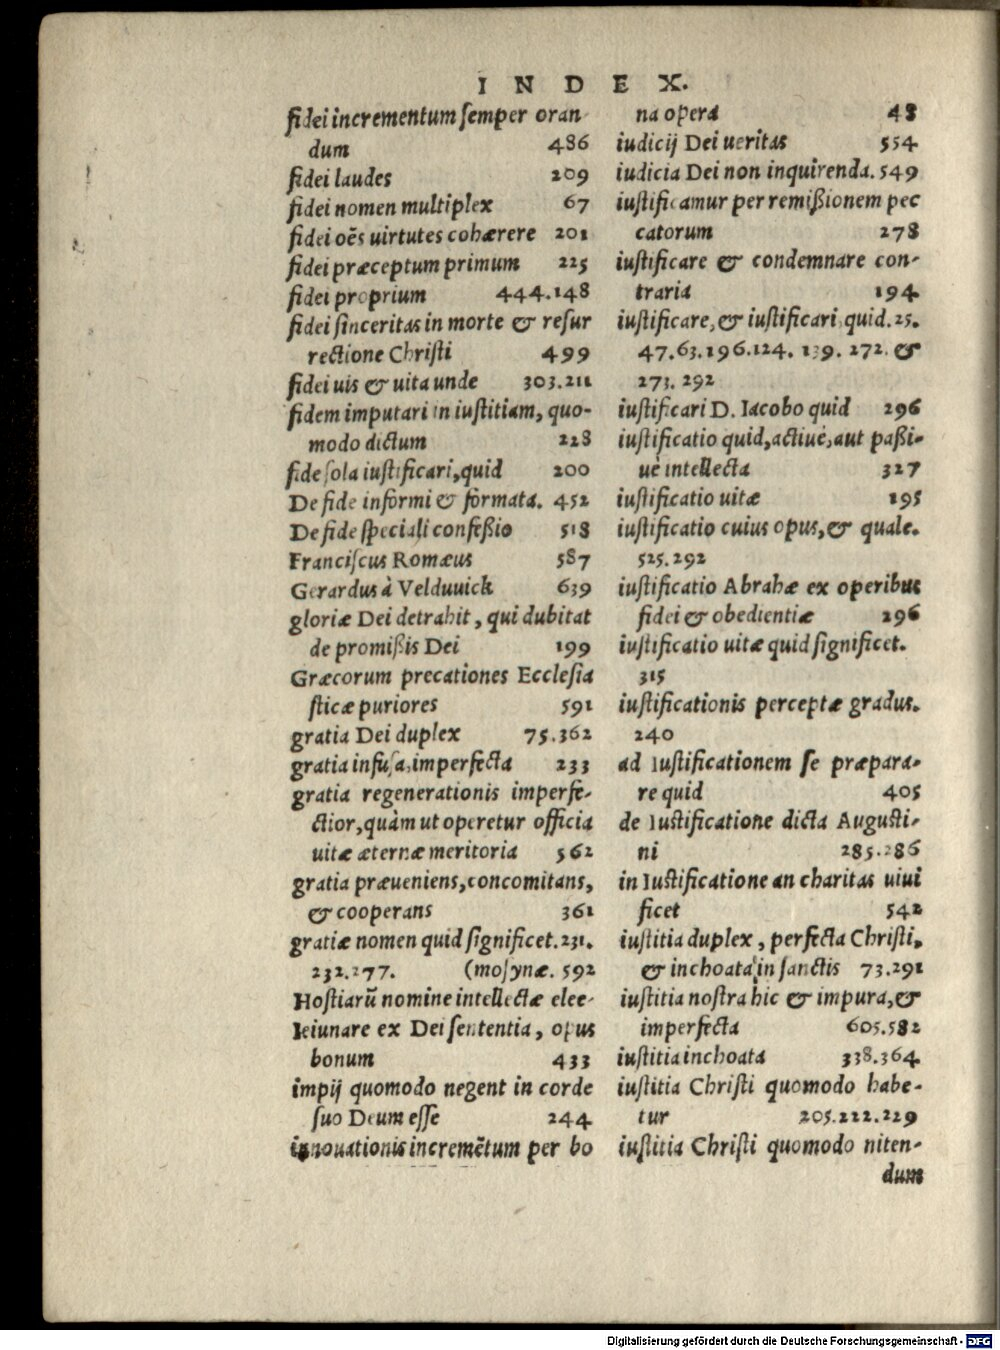 INDEX.
fidei incrementum ſemper oran-
dum 486
fidei laudes 209
fidei nomen multiplex 67
fidei oẽs uirtutes cohærere 201
fidei præceptum primum 225
fidei proprium 444.148
fidei ſinceritas in morte & reſur
rectione Chriſti 499
fidei uis & uita unde 303.211
fidem imputari in iuſtitiam, quo-
modo dictum 228
fide ſola iuſtificari, quid 200
De fide informi & formata. 452
De fide ſpeciali confeßio 518
Franciſcus Romæus 587
Gerardus à Velduuick 639
gloriæ Dei detrahit, qui dubitat
de promißis Dei 199
Græcorum precationes Eccleſia
ſticæ puriores 591
gratia Dei duplex 75.362
gratia infuſa, imperfecta 233
gratia regenerationis imperfe-
ctior, quàm ut operetur officia
uitæ æternæ meritoria 562
gratia præueniens, concomitans,
& cooperans 361
gratiæ nomen quid ſignificet. 231.
232.277. (moſynæ. 592
Hoſtiarũ nomine intellectæ elee-
Ieiunare ex Dei ſententia, opus
bonum 433
impij quomodo negent in corde
ſuo Deum eſſe 244
innouationis incremẽtum per bo
na opera 48
iudicij Dei ueritas 554
iudicia Dei non inquirenda. 549
iuſtificamur per remißionem pec
catorum 278
iuſtificare & condemnare con-
traria 194
iuſtificare, & iuſtificari, quid. 25.
47.63.196.124. 139. 272. &
273. 292
iuſtificari D. Iacobo quid 296
iuſtificatio quid, actiuè, aut paßi-
uè intellecta 327
iuſtificatio uitæ 195
iuſtificatio cuius opus, & quale.
525.292
iuſtificatio Abrahæ ex operibus
fidei & obedientiæ 296
iuſtificatio uitæ quid ſignificet.
315
iuſtificationis perceptæ gradus.
240
ad Iuſtificationem ſe præpara-
re quid 405
de Iuſtificatione dicta Auguſti-
ni 285.286
in Iuſtificatione an charitas uiui
ficet 542
iuſtitia duplex, perfecta Chriſti,
& inchoata in ſanctis 73.291
iuſtitia noſtra hic & impura, &
imperfecta 605.582
iuſtitia inchoata 338.364
iuſtitia Chriſti quomodo habe-
tur 205.222.229
iuſtitia Chriſti quomodo niten-
dum
Digitalisierung gefördert durch die Deutsche Forschungsgemeinschaft - DFG